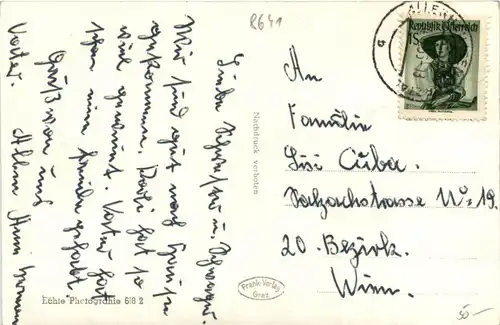 2641
Liebe Schwester u. Schwager.
Wir sind gut nach Hause
gekommen. Rosi hat so
viel geweint. Vater hat
schon eine Freude gehabt.
Gruß von uns
Allen
Vater.
Nachdruck verboten
Echte Photographie 618 2
Frank-Verlag
Graz
Republik Österreich
1S
An
Familie
Lisi Cuba.
Salzachstrasse No. 19.
20. Bezirk.
Wien.
50-